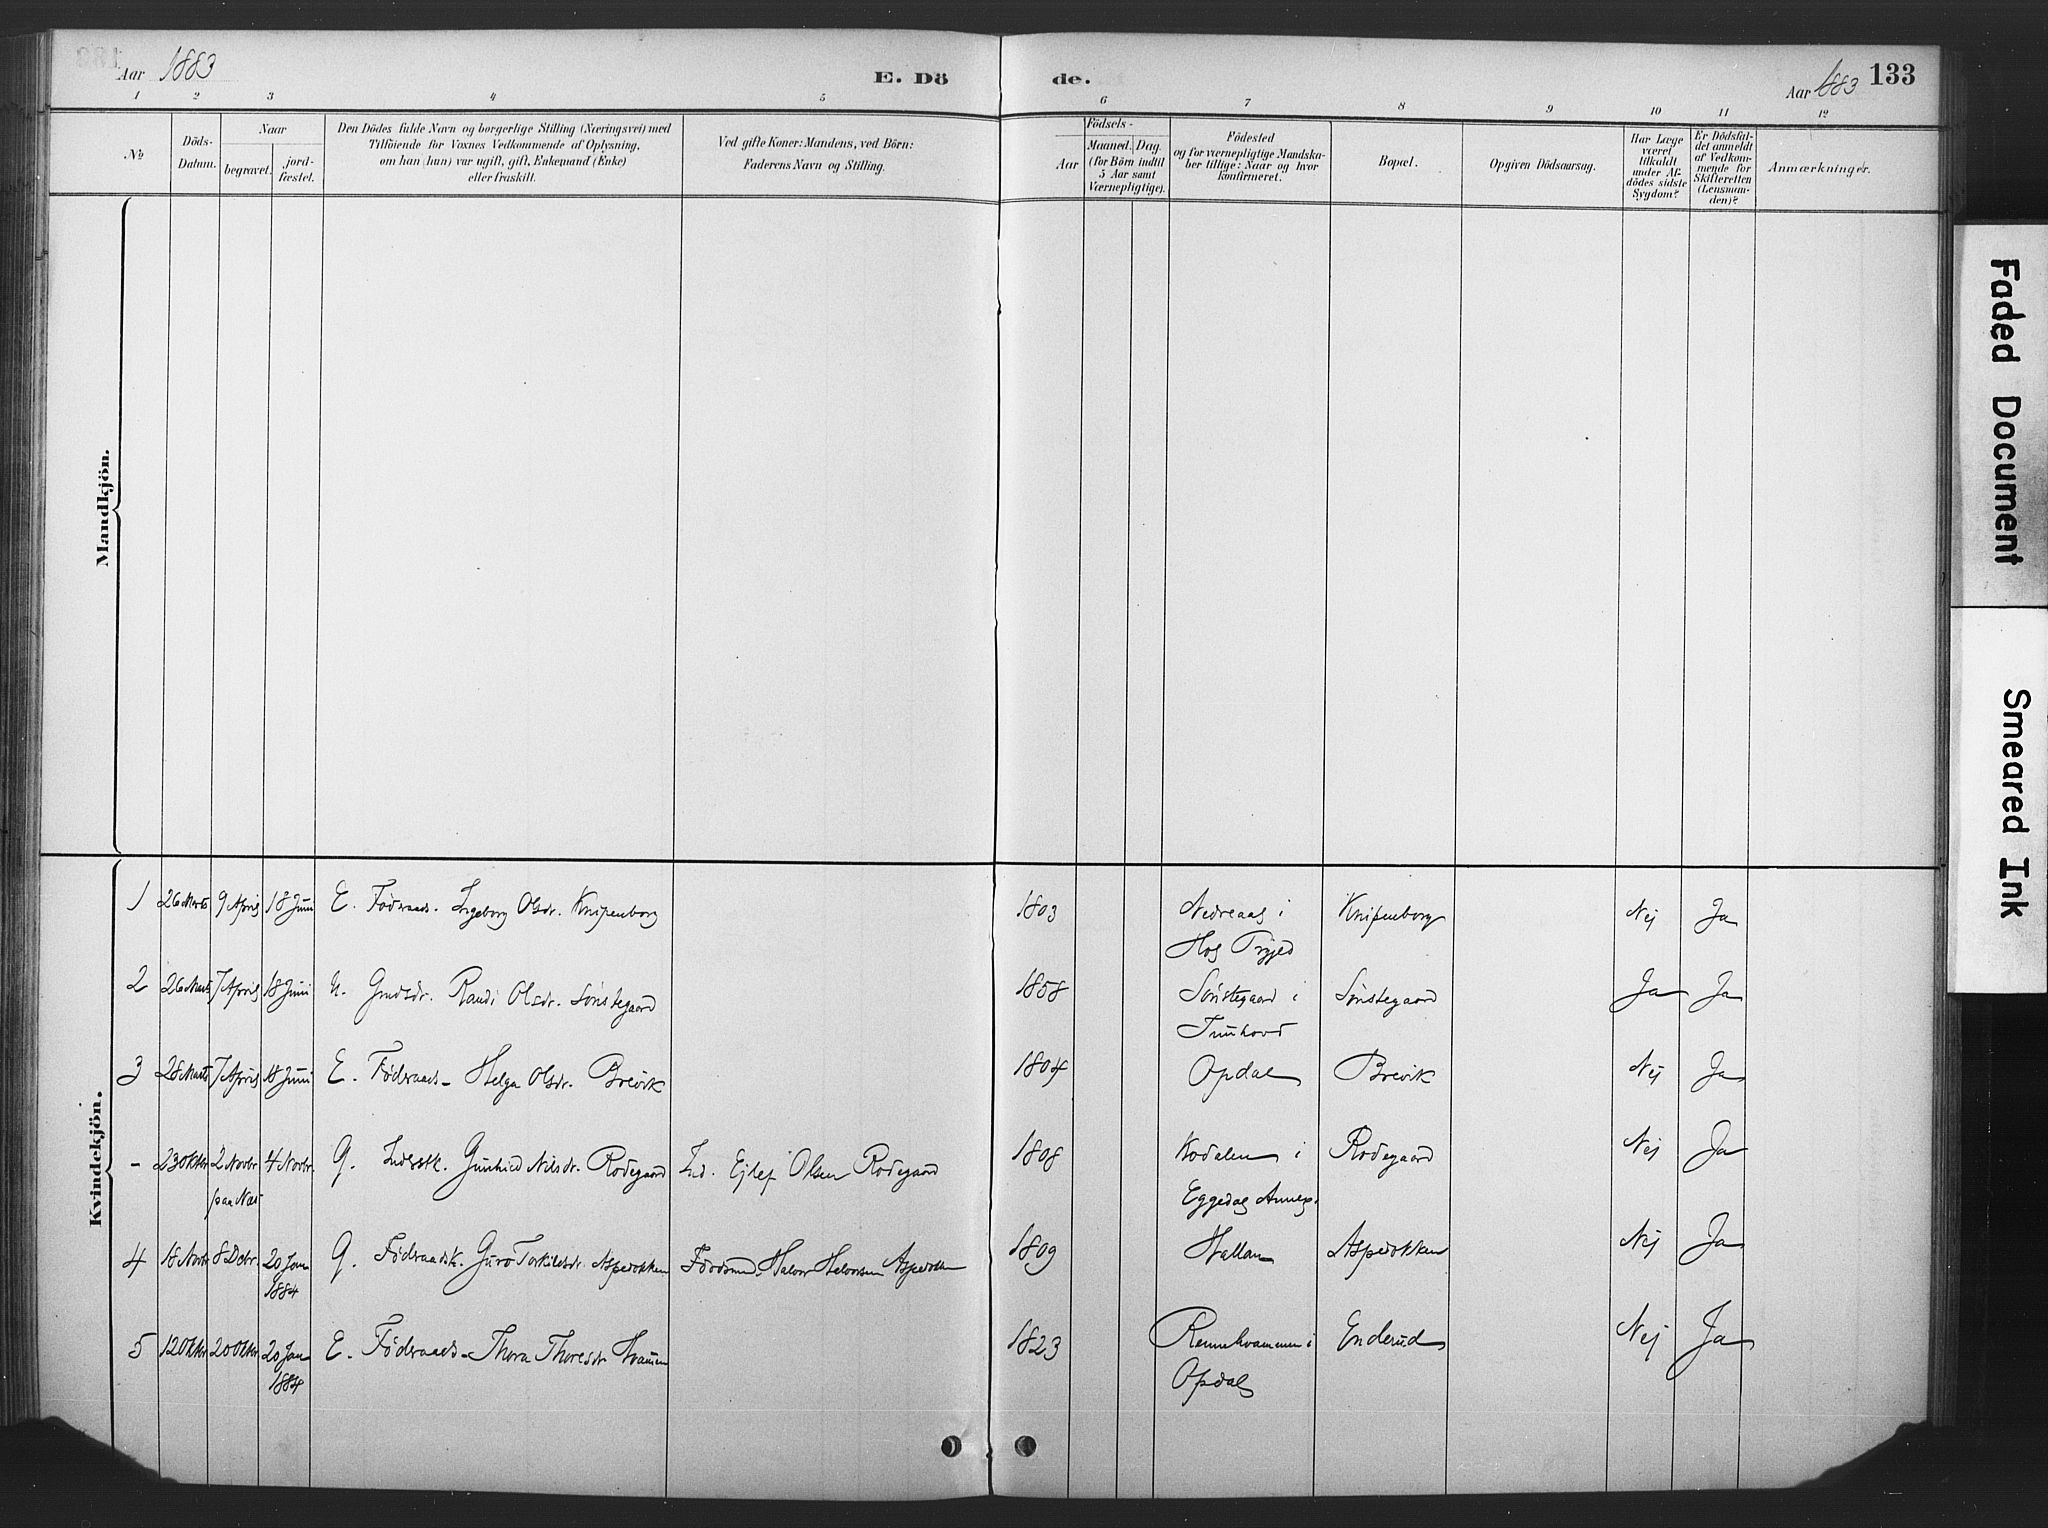 Aar 1883
E. Dö
de.
Aar 1883
133
1 2 3 4 5 6 7 8 9 10 11 12
No
Döds-
Datum.
Naar
begravet.
jord-
fæstet.
Den Dödes fulde Navn og borgerlige Stilling (Næringsvei) med
Tilföiende for Voxnes Vedkommende af Oplysning,
om han (hun) var ugift, gift, Enkemand (Enke)
eller fraskilt.
Ved gifte Koner: Mandens, ved Börn:
Faderens Navn og Stilling.
Födsels-
Aar
Maaned. Dag.
(for Börn indtil
5 Aar samt
Værnepligtige).
Födested
og for værnepligtige Mandska-
ber tillige: Naar og hvor
konfirmeret.
Bopæl.
Opgiven Dödsaarsag.
Har Læge
været
tilkaldt
under Af-
dödes sidste
Sygdom?
Er Dödsfal-
det anmeldt
af Vedkom-
mende for
Skifteretten
(Lensman-
den)?
Anmærkninger.
Mandkjön.
Kvindekjön.
1 26 Marts 9 April 18 Juni E. Föderaads- Ingeborg Olsdr. Knipenborg 1803 Nedreaas i Knipenborg Nej Ja
2 26 Marts 7 April 18 Juni U. Grdsdr. Randi Olsdr. Sönstegaard 1858 Sönstegaard i Sönstegaard Ja Ja
Tunhovd
3 28 Marts 7 April 18 Juni E. Föderaads- Helga Olsdr. Brevik 1804 Opdal Brevik Nej Ja
- 23 Oktbr 2 Novbr 4 Novbr. G. Inderstk. Gunhild Nilsdr. Rodegaard Ind. Ejlef Olsen Rodegaard 1808 Kodalen i Rodegaard Nej Ja
paa Næs Eggedal Annex.
4 18 Novbr 8 Debr. 20 Jan 1884 G. Föderaadsk. Guro Torkildsdr. Aspedokken Halvor Helvorsen 1809 Hallan Aspedokken Nej Ja
5 12 Oktbr 20 Oktbr 20 Jan 1884 E. Föderaads- Thora Thoresdr 1823 Enderud Nej Ja
Opdal
Faded Document
Smeared Ink